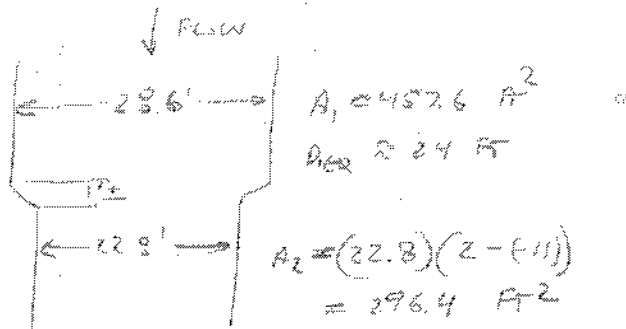 FLOW
28.6' A₁ = 457.6 FT²
D₁EQ ≈ 24 FT
22.8' A₂ = (22.8)(2 - (-11))
= 296.4 FT²